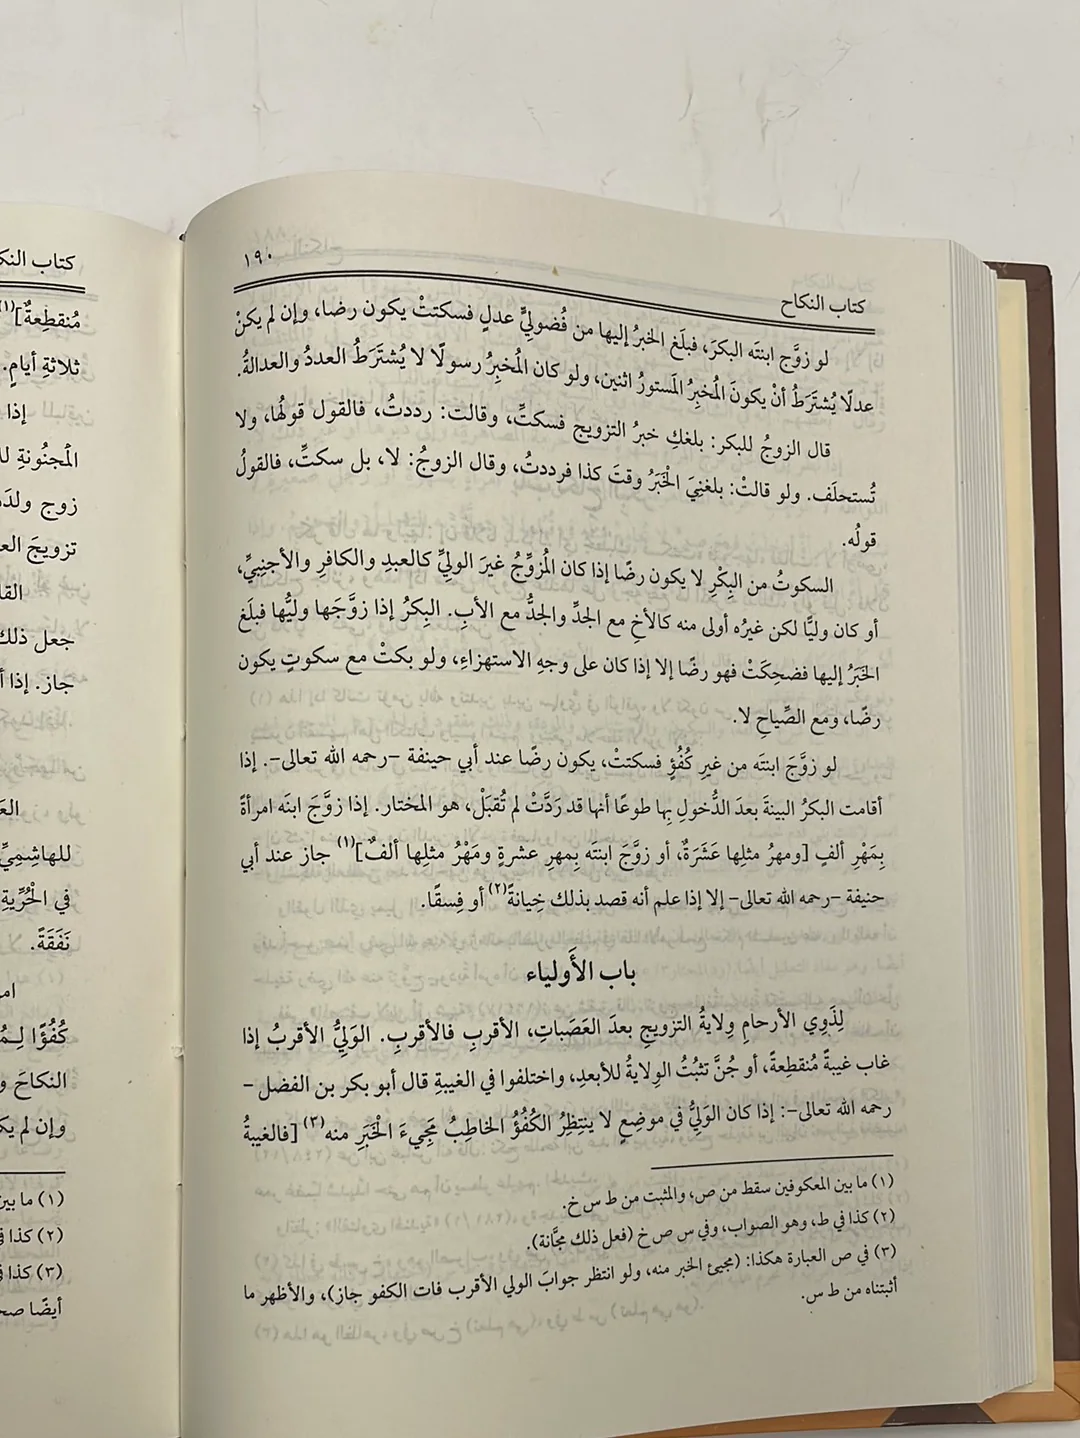 كتاب النكاح
١٩٠
لو زوَّج ابنتَه البكرَ، فبلَغ الخبرُ إليها من فُضوليٍّ عدلٍ فسكتتْ يكون رضا، وإن لم يكنْ
عدلًا يُشتَرَطُ أنْ يكونَ المُخبِرُ المَستورُ اثنين، ولو كان المُخبِرُ رسولًا لا يُشتَرَطُ العددُ والعدالةُ.
قال الزوجُ للبكر: بلغكِ خبرُ التزويج فسكتِّ، وقالت: رددتُ، فالقول قولهُا، ولا
تُستحلَف. ولو قالتْ: بلغنِيَ الْخَبَرُ وقتَ كذا فرددتُ، وقال الزوجُ: لا، بل سكتِّ، فالقولُ
قولُه.
السكوتُ من البِكْرِ لا يكون رضًا إذا كان المُزوِّجُ غيرَ الوليِّ كالعبدِ والكافرِ والأجنبِيِّ،
أو كان وليًّا لكن غيرُه أولى منه كالأخِ مع الجدِّ والجدُّ مع الأبِ. البِكرُ إذا زوَّجَها وليُّها فبلَغ
الخَبَرُ إليها فضحِكَتْ فهو رضًا إلا إذا كان على وجهِ الاستهزاءِ، ولو بكتْ مع سكوتٍ يكون
رضًا، ومع الصِّياحِ لا.
لو زوَّجَ ابنتَه من غيرِ كُفُؤٍ فسكتتْ، يكون رضًا عند أبي حنيفة –رحمه الله تعالى–. إذا
أقامت البكرُ البينةَ بعدَ الدُّخولِ بِها طوعًا أنها قد رَدَّتْ لم تُقبَلْ، هو المختار. إذا زوَّجَ ابنَه امرأةً
بِمَهْرِ ألفٍ [ومهرُ مثلِها عَشَرَةٌ، أو زوَّجَ ابنتَه بِمهرِ عشرةٍ ومَهْرُ مثلِها ألفٌ](١) جاز عند أبي
حنيفة –رحمه الله تعالى– إلا إذا علم أنه قصد بذلك خِيانةً(٢) أو فِسقًا.
باب الأَولياء
لِذَوِي الأرحامِ وِلايةُ التزويجِ بعدَ العَصَباتِ، الأقربِ فالأقربِ. الوَليُّ الأقربُ إذا
غاب غيبةً مُنقطِعةً، أو جُنَّ تثبُتُ الوِلايةُ للأبعدِ، واختلفوا في الغيبةِ قال أبو بكر بن الفضل –
رحمه الله تعالى–: إذا كان الوَليُّ في موضِعٍ لا ينتظِرُ الكُفُؤُ الخاطِبُ مَجِيءَ الْخَبَرِ منه(٣) [فالغيبةُ
(١) ما بين المعكوفين سقط من ص، والمثبت من ط س خ.
(٢) كذا في ط، وهو الصواب، وفي س ص خ (فعل ذلك مجَّانة).
(٣) في ص العبارة هكذا: (مجيئ الخبر منه، ولو انتظر جوابَ الولي الأقرب فات الكفو جاز)، والأظهر ما
أثبتناه من ط س.
مُنقطِعةٌ](١)
ثلاثةِ أيامٍ.
إذا
المجنُونةِ
زوج
تزويجَ
جعل ذلك
جاز. إذا
للهاشِمِيِّ
في الْحُرِّيةِ
نَفَقَةً.
كُفُؤًا
النكاحَ
وإن لم
(١) ما بين
(٢) كذا
(٣) كذا
أيضًا